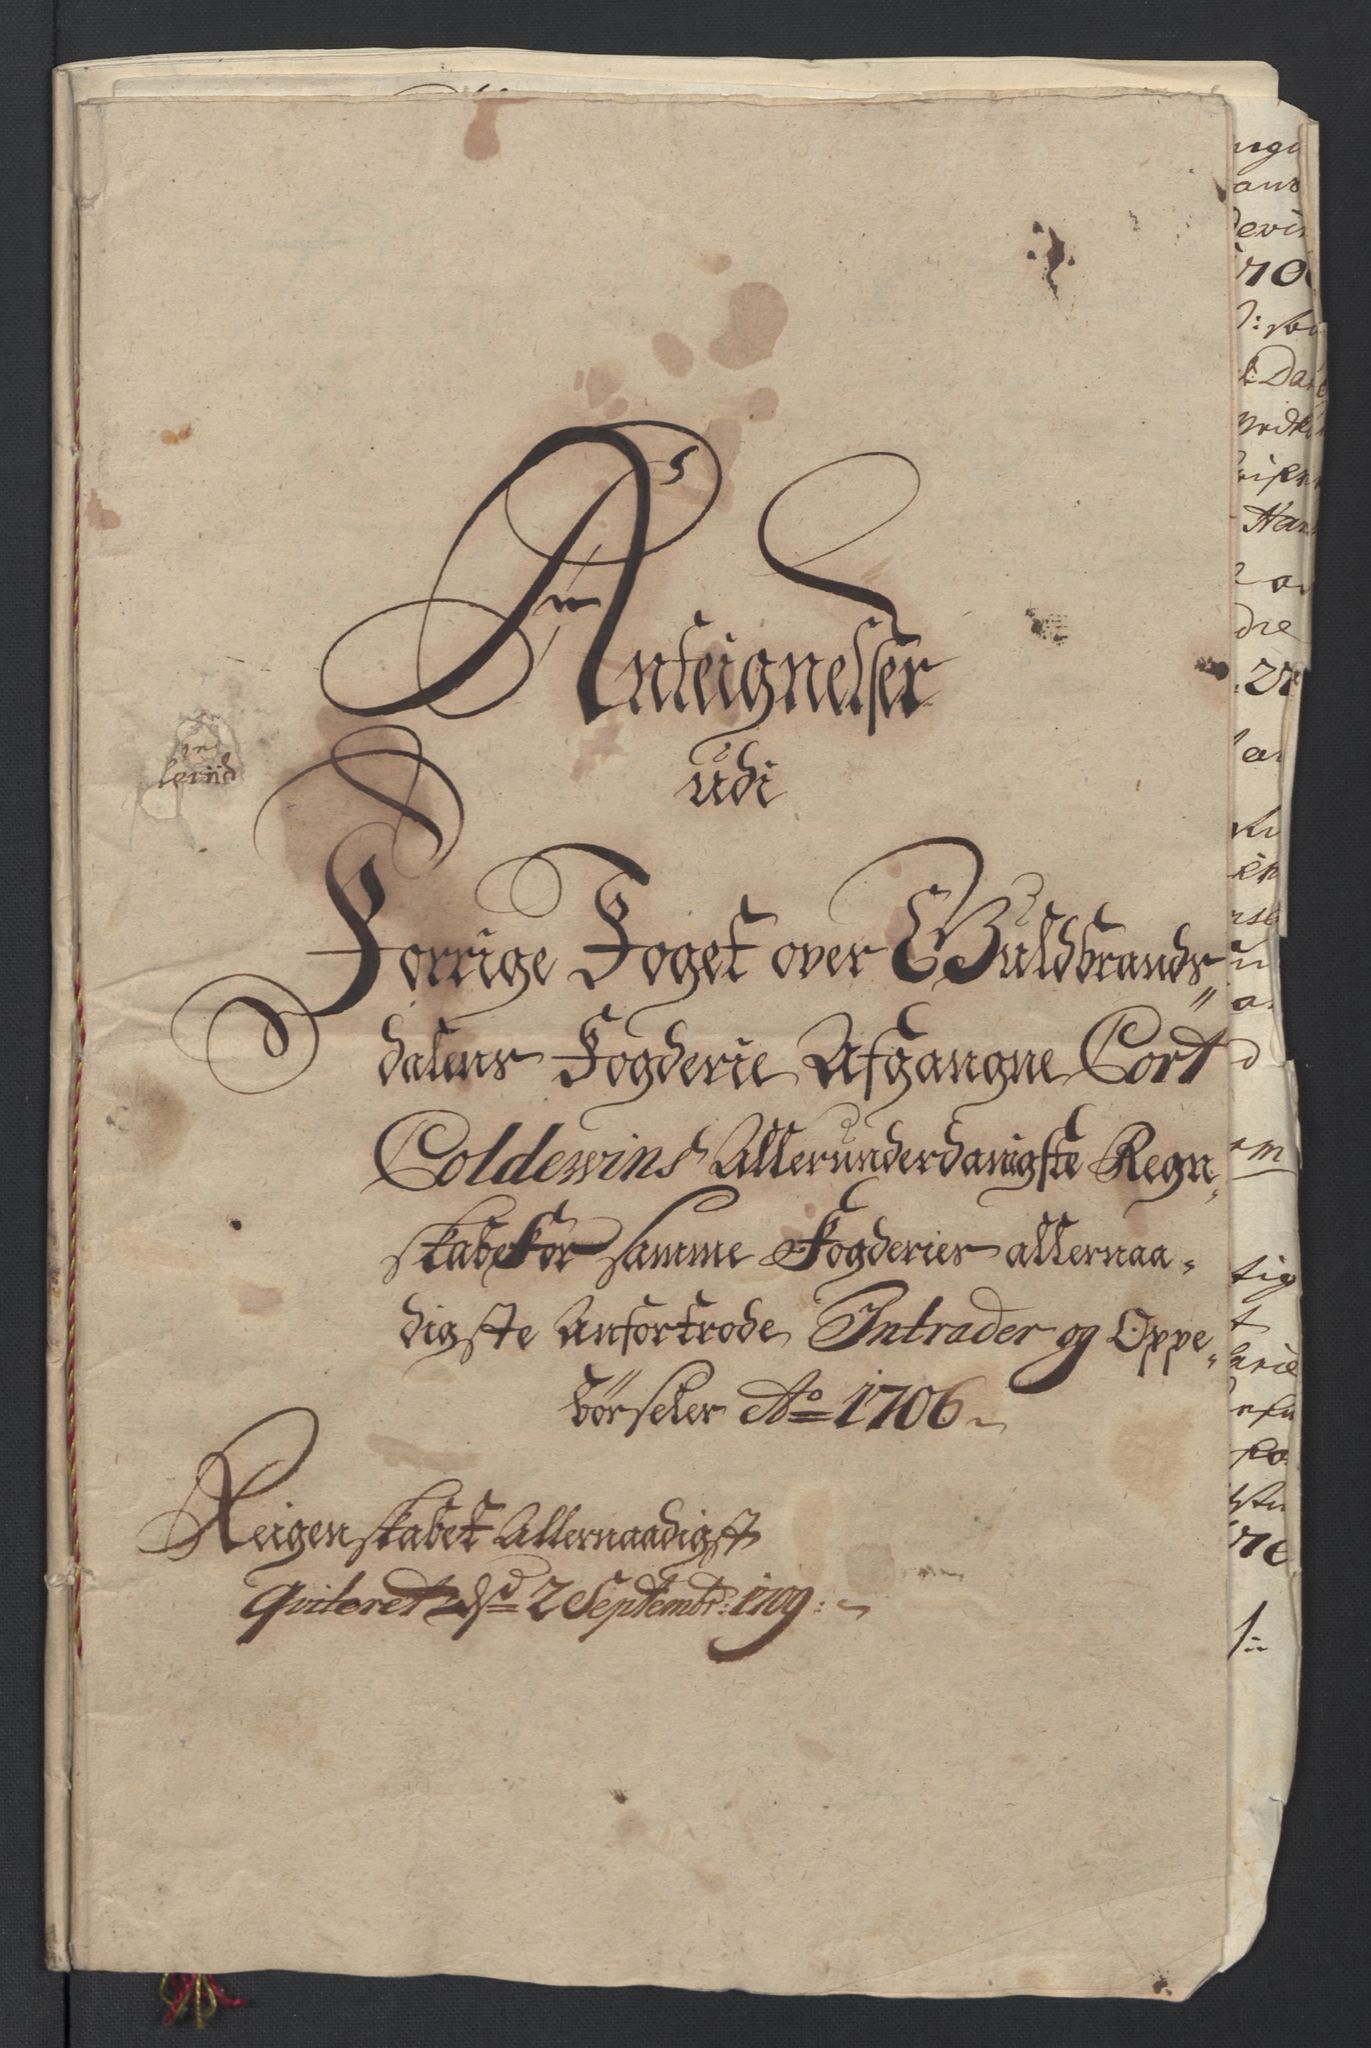 Anteignelser
udi
Forrige Foget over Guldbrands„
dalens Fogderie Afgangne Cort
Coldewins Allerunderdanigste Regn„
skabe for samme Fogderies allernaa„
digste Anfortrode Intrader og Oppe„
börseler Ao 1706
Reigenskabet Allernaadigst
qviteret dend 2 Septembr: 1709: